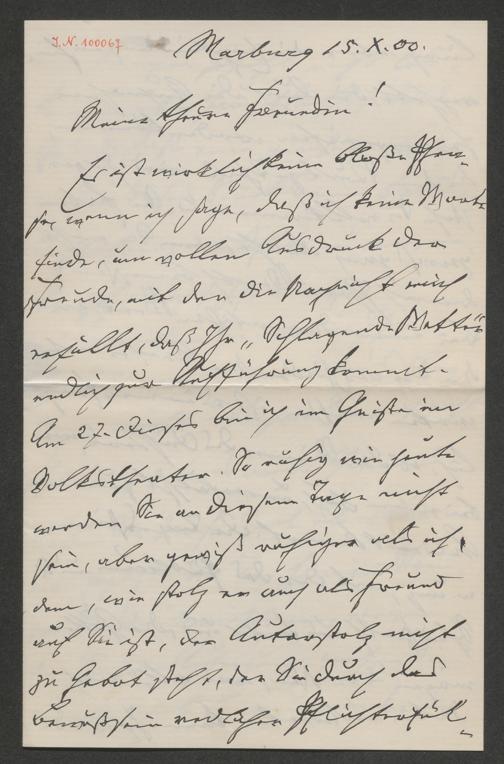 I.N. 100067
Marburg 15.X.00.
Meine theure Freundin!
Es ist wirklich keine bloße Phra-
se, wenn ich sage, daß ich keine Worte
finde, um vollen Ausdruck der
Freude, mit der die Nachricht mich
erfüllt, daß Ihr „Schlagende Wetter"
endlich zur Aufführung kommt.
Am 27. dieses bin ich im Geiste im
Volkstheater. So ruhig wie heute
werden Sie an diesem Tage nicht
sein, aber gewiß ruhiger als ich,
dem, wie stolz er auch als Freund
auf Sie ist, der Autorstolz nicht
zu Gebot steht, der Sie durch das
Bewußtsein redlicher Pflichterfül-